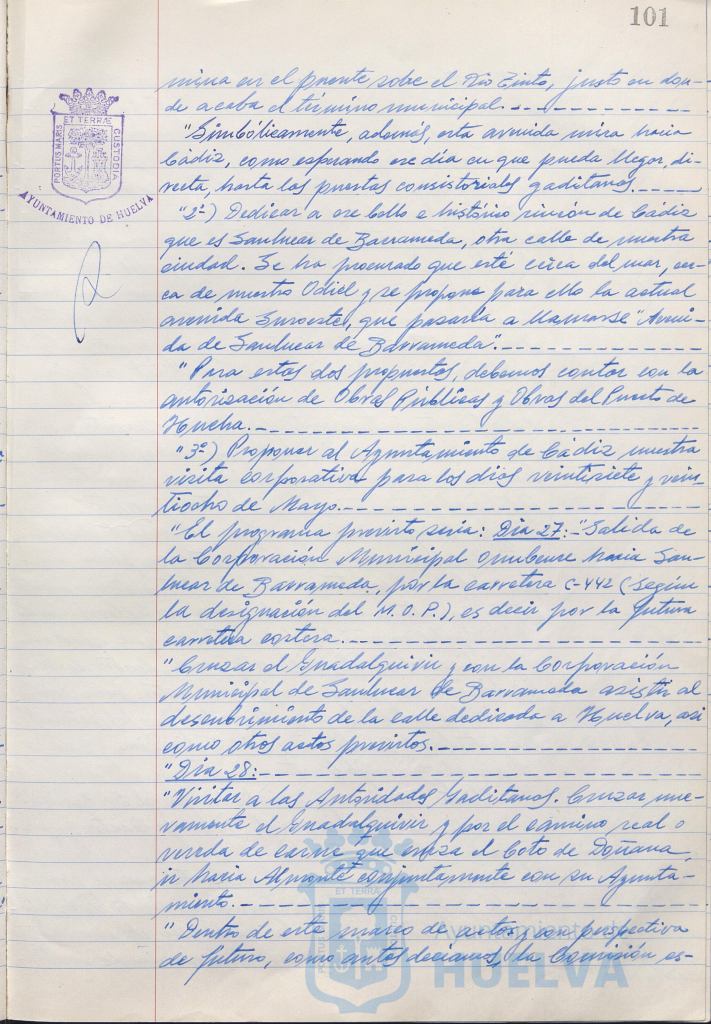 101
mina en el puente sobre el Río Tinto, justo en don-
de acaba el término municipal.
"Simbólicamente, además, esta avenida mira hacia
Cádiz, como esperando ese día en que pueda llegar, di-
recta, hasta las puertas consistoriales gaditanas.
"2ª) Dedicar a ese bello e histórico rincón de Cádiz
que es Sanlucar de Barrameda, otra calle de nuestra
ciudad. Se ha procurado que esté cerca del mar, cer-
ca de nuestro Odiel y se propone para ello la actual
avenida Suroeste, que pasaría a llamarse "Aveni-
da de Sanlucar de Barrameda".
"Para estas dos propuestas, debemos contar con la
autorización de Obras Públicas y Obras del Puerto de
Huelva.
"3º) Proponer al Ayuntamiento de Cádiz nuestra
visita corporativa para los días veintisiete y vein-
tiocho de Mayo.
"El programa previsto sería: Día 27: "Salida de
la Corporación Municipal onubense hacia San-
lucar de Barrameda, por la carretera C-442 (según
la designación del M.O.P.), es decir por la futura
carretera costera.
"Cruzar el Guadalquivir y con la Corporación
Municipal de Sanlucar de Barrameda asistir al
descubrimiento de la calle dedicada a Huelva, así
como otros actos previstos.
"Día 28:
"Visitar a las Autoridades Gaditanas. Cruzar nue-
vamente el Guadalquivir y por el camino real o
vereda de carne que cruza el Coto de Doñana,
ir hacia Almonte conjuntamente con su Ayunta-
miento.
"Dentro de este marco de actos, con perspectiva
de futuro, como antes decíamos, la Comisión es-
PORTUS MARIS
ET TERRÆ
CUSTODIA
AYUNTAMIENTO DE HUELVA
ET TERRAE
Ayuntamiento de
HUELVA